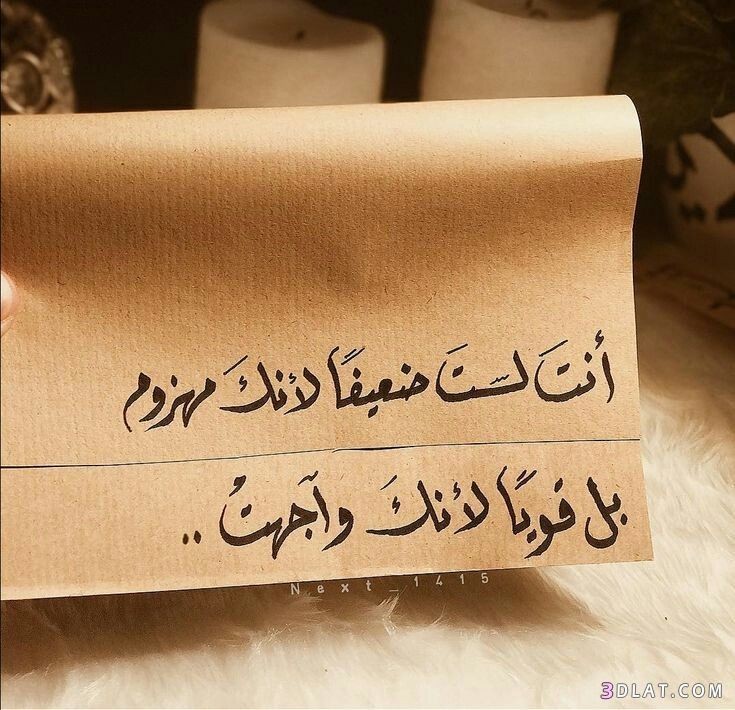 أنتَ لستَ ضعيفاً لأنكَ مهزوم
بل قوياً لأنكَ وآجهتُ ..
Next_1415
3DLAT.COM